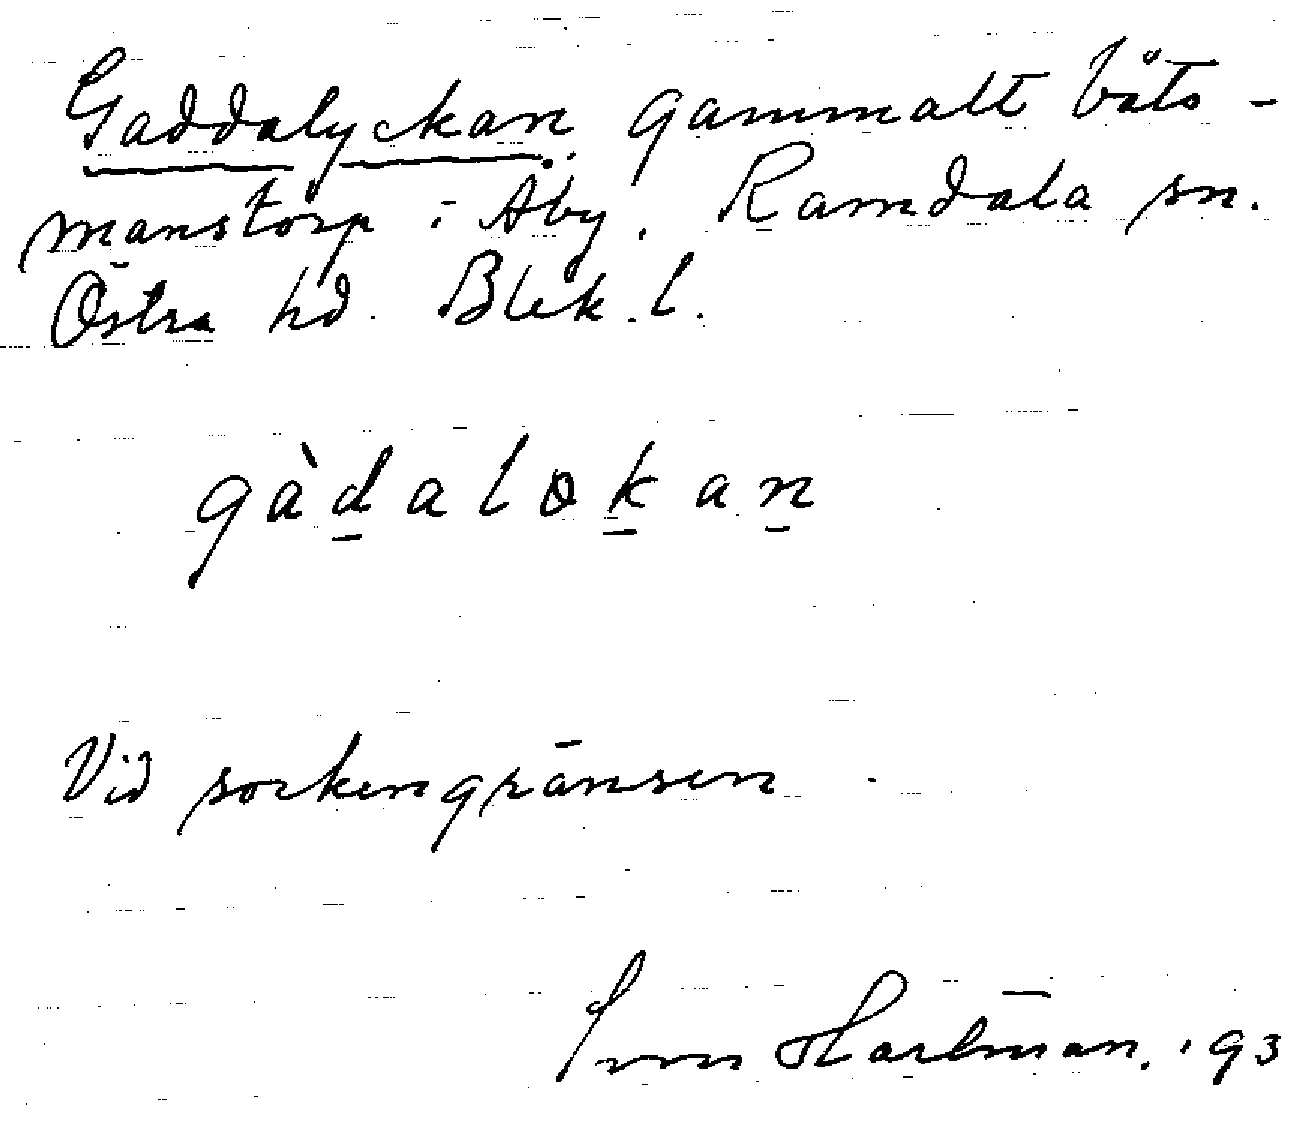 Gaddalyckan. gammalt båts-
manstorp i Åby. Ramdala sn.
Östra hd. Blek. l.
gàdalokan
Vid sockengränsen.
Hartman. 193